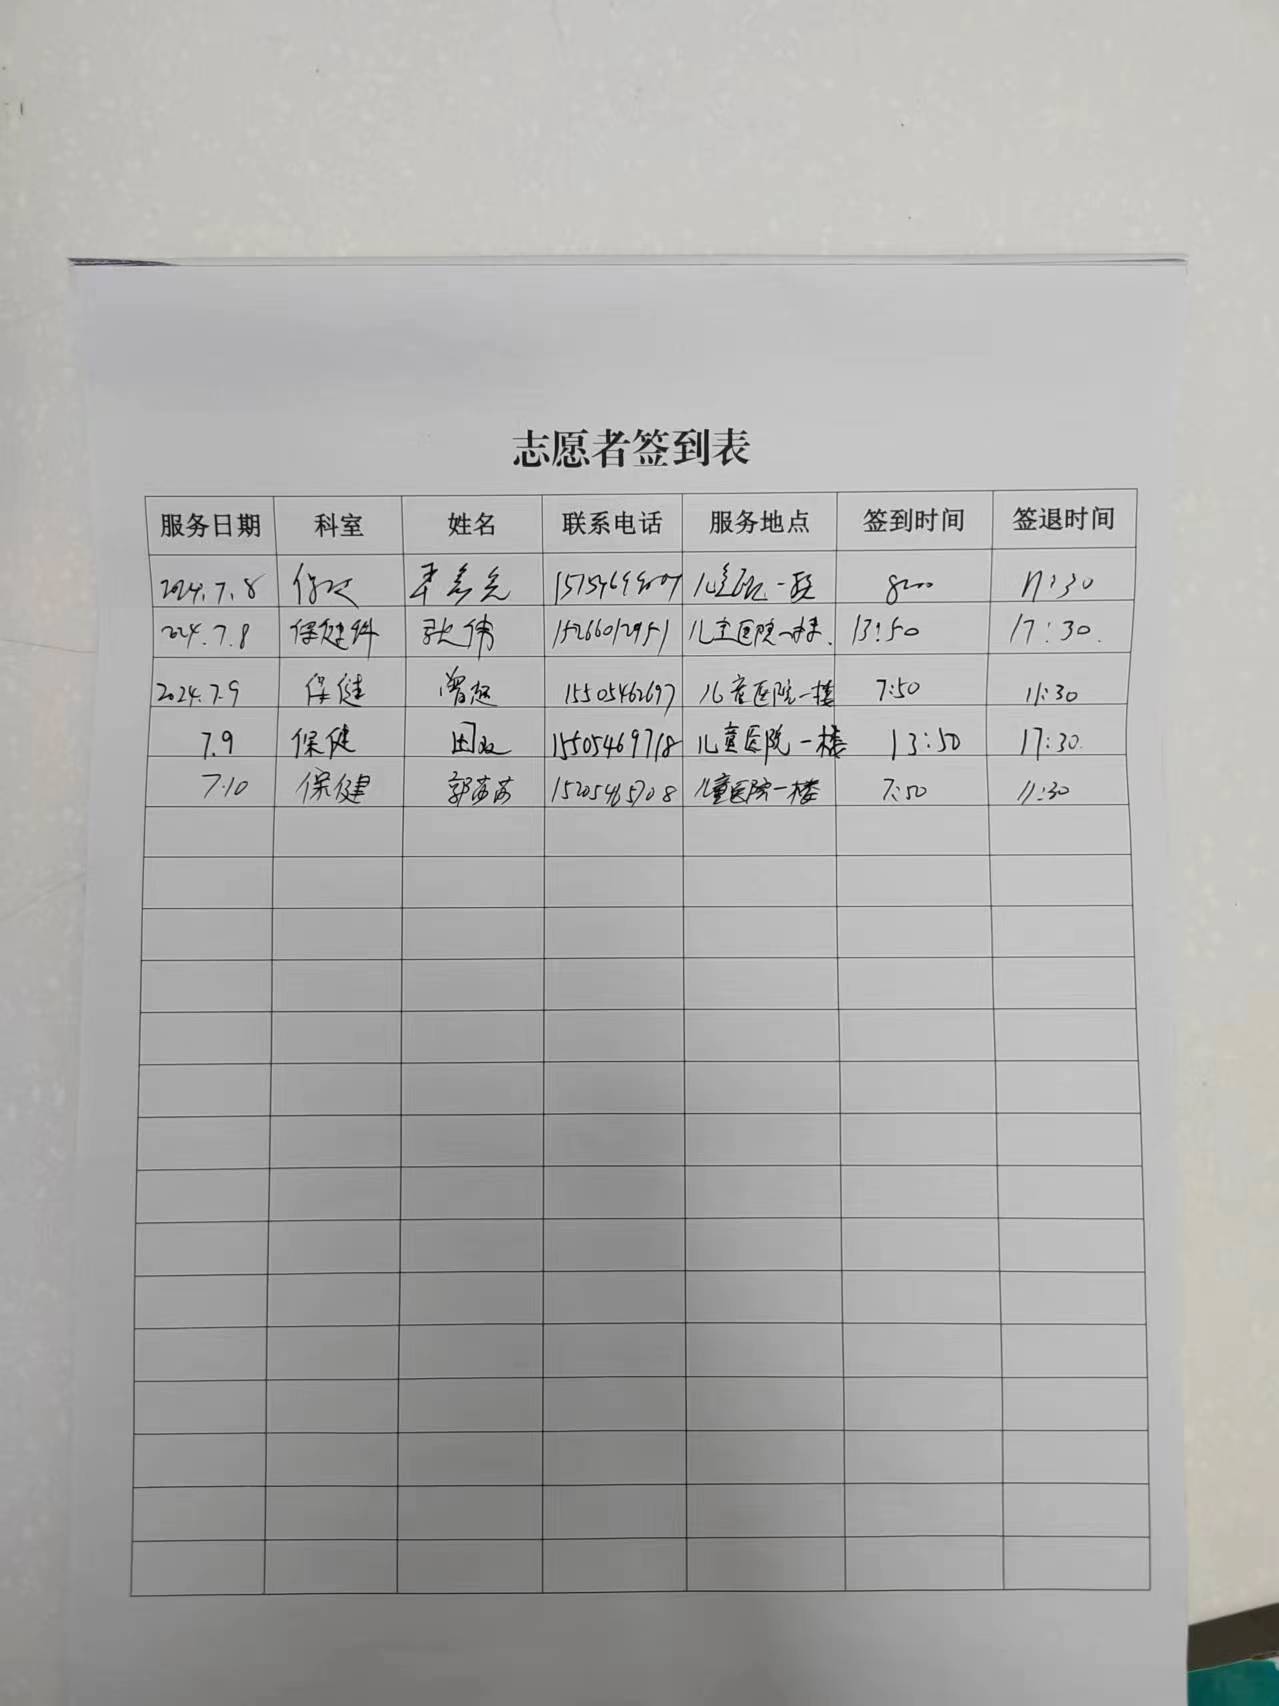 志愿者签到表
服务日期 科室 姓名 联系电话 服务地点 签到时间 签退时间
2024.7.8 8:00 11:30
2024.7.8 保健科 张伟 15266012951 儿童医院一楼. 13:50 17:30.
2024.7.9 保健 曾超 15505462697 儿童医院一楼 7:50 11:30
7.9 保健 15505469718 儿童医院一楼 13:50 17:30.
7.10 保健 郭莎莎 15205465708 儿童医院一楼 7:50 11:30